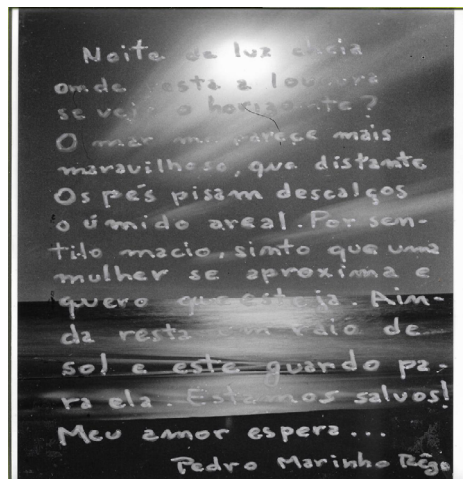 Noite de luz cheia
onde resta a loucura
se vejo o horizonte?
O mar me parece mais
maravilhoso, que distante
Os pés pisam descalços
o úmido areal. Por sen-
tilo macio, sinto que uma
mulher se aproxima e
quero que esteja. Ain-
da resta um raio de
sol e este guardo pa-
ra ela. Estamos salvos!
Meu amor espera...
Pedro Marinho Rêgo